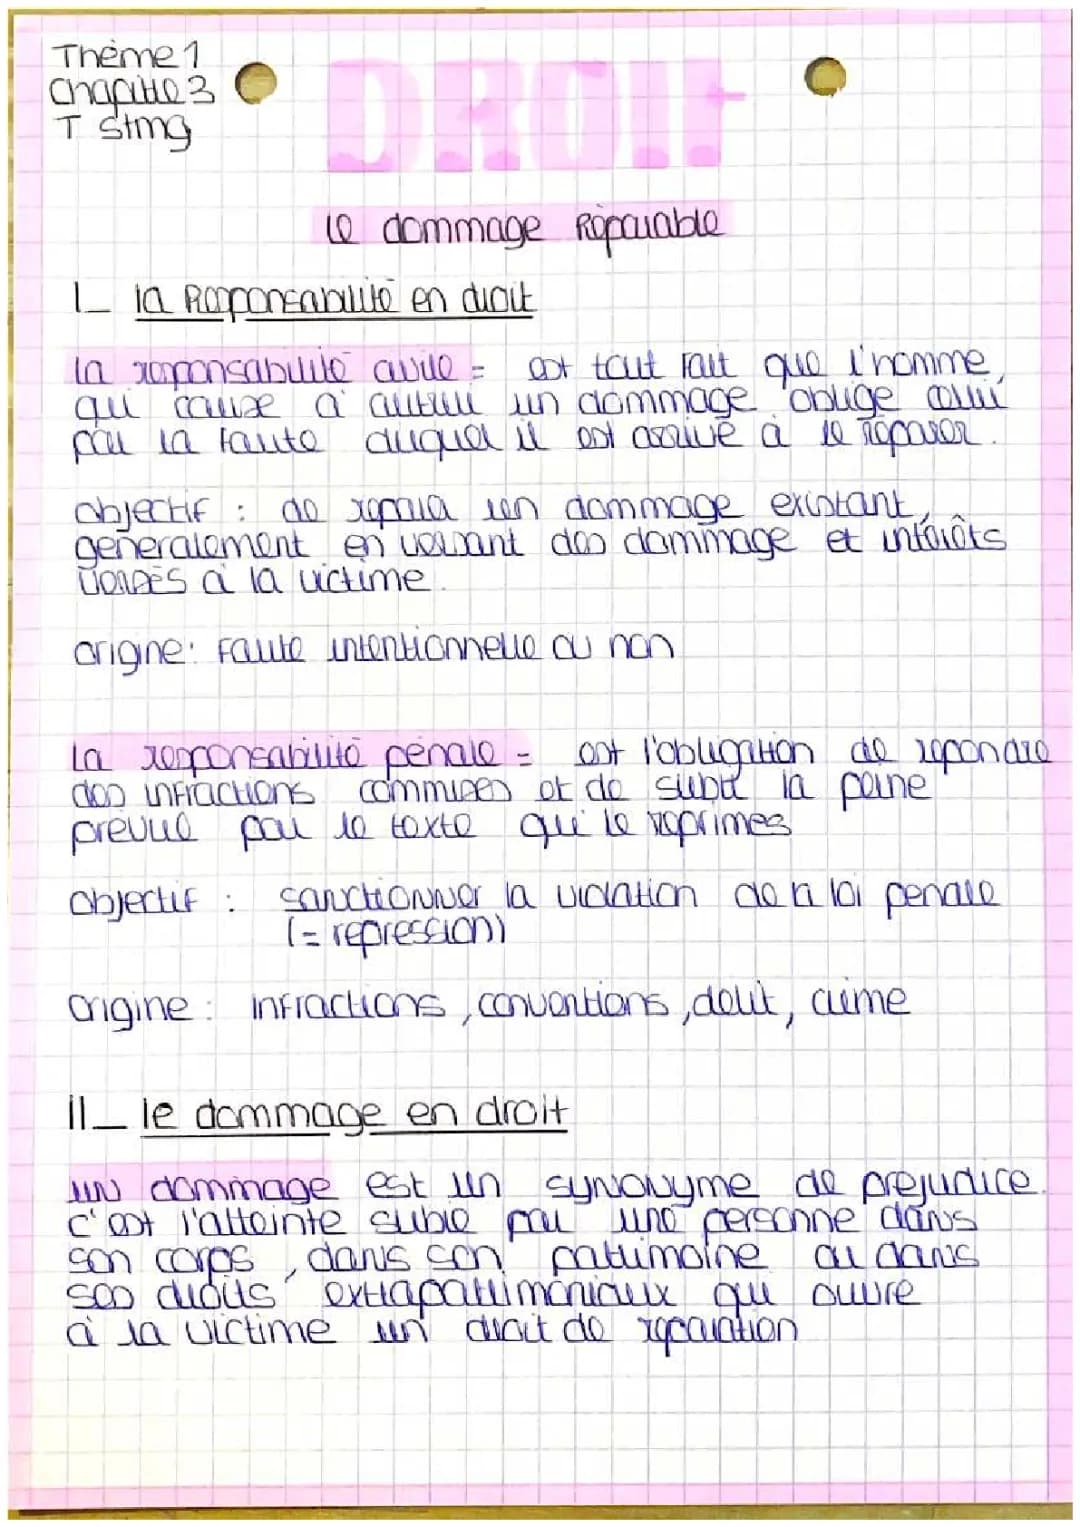 Thème 1
Chapitre 3
T stmg
DROIT
le dommage Réparable
I_ la Responsabilité en droit
la responsabilité civile = est tout fait que l'homme,
qui cause à autrui un dommage oblige celui
par la faute duquel il est arrivé à le réparer.
objectif : de repara un dommage existant,
generalement en versant des dommage et intérêts
versés à la victime.
origine: Faute intentionnelle ou non
la responsabilité pénale = est l'obligation de repondre
des infractions commises et de subir la peine
prévue par le texte qui le reprimes
objectif : sanctionner la violation de la loi penale
(= repression)
origine : infractions, conventions, delit, crime
II_ le dommage en droit
un dommage est un synonyme de prejudice.
c'est l'atteinte subie par une personne dans
son corps, dans son patrimoine ou dans
ses droits extrapatrimoniaux qui ouvre
à la victime un droit de reparation